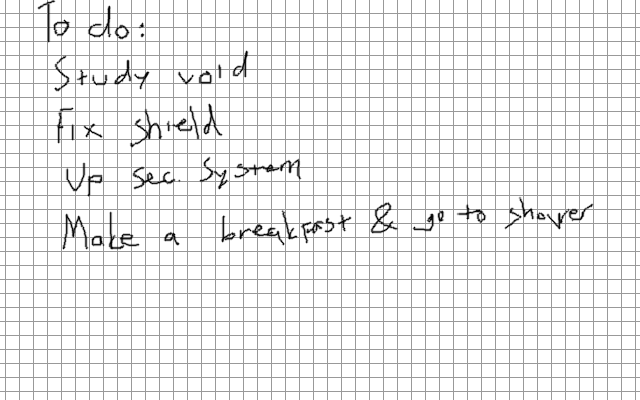 To do:
Study void
Fix shield
Up sec. System
Make a breakfast & go to shower